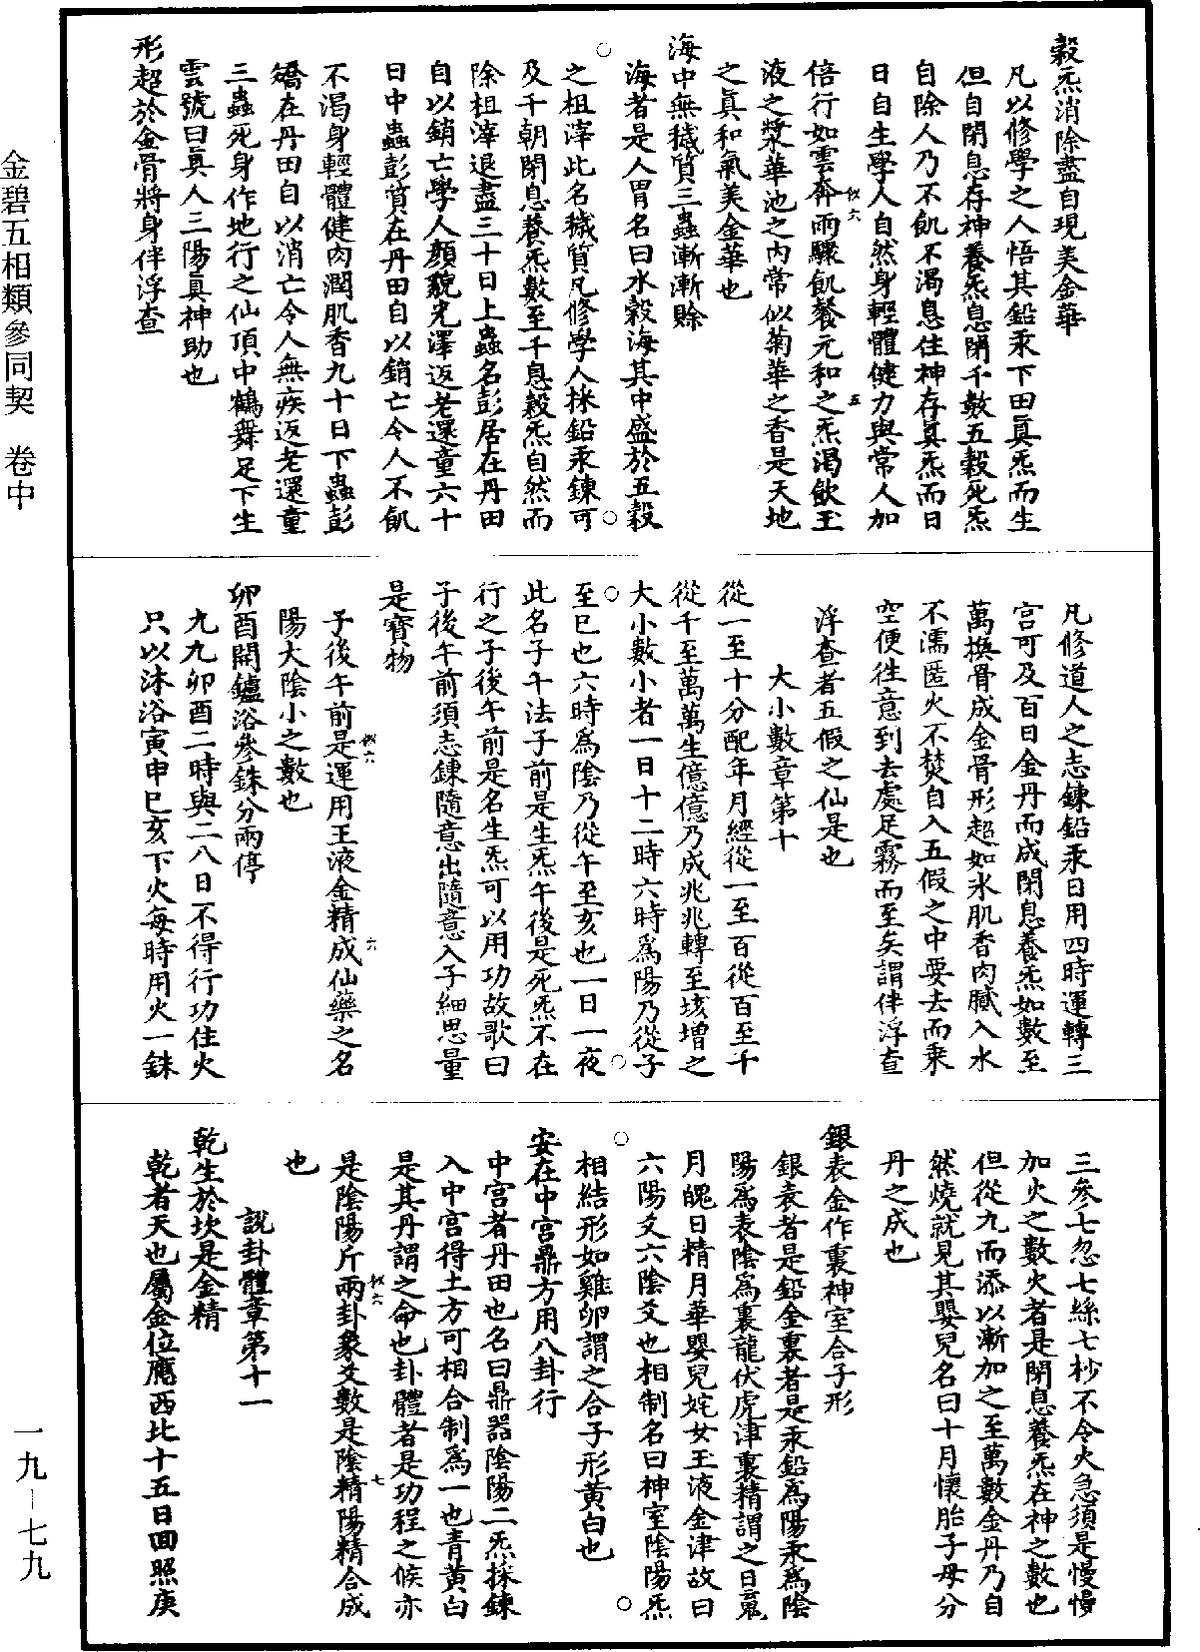 穀炁消除盡自現美金華
凡以修學之人悟其鉛汞下田真炁而生
但自閉息存神養炁息閉千數五穀死炁
自除人乃不飢不渴息住神存真炁而日
日自生學人自然身輕體健力與常人加
倍行如雲奔雨驟飢餐元和之炁渴飲玉
液之漿華池之內常似菊華之香是天地
之真和氣美金華也
海中無穢質三蟲漸漸賒
海者是人胃名曰水穀海其中盛於五穀
之柤滓此名穢質凡修學人採鉛汞鍊可
及千朝閉息養炁數至千息穀炁自然而
除柤滓退盡三十日上蟲名彭居在丹田
自以銷亡學人顏貌光澤返老還童六十
日中蟲彭質在丹田自以銷亡令人不飢
不渴身輕體健肉潤肌香九十日下蟲彭
矯在丹田自以消亡令人無疾返老還童
三蟲死身作地行之仙頂中鶴舞足下生
雲號曰真人三陽真神助也
形超於金骨將身伴浮查
凡修道人之志鍊鉛汞日用四時運轉三
宮可及百日金丹而成閉息養炁如數至
萬換骨成金骨形超如氷肌香肉膩入水
不濡匿火不焚自入五假之中要去而乘
空便往意到去處足霧而至矣謂伴浮查
浮查者五假之仙是也
大小數章第十
從一至十分配年月經從一至百從百至千
從千至萬萬生億億乃成兆兆轉至垓增之
大小數小者一日十二時六時為陽乃從子
至巳也六時為陰乃從午至亥也一日一夜
此名子午法子前是生炁午後是死炁不在
行之子後午前是名生炁可以用功故歌曰
子後午前須志鍊隨意出隨意入子細思量
是寶物
子後午前是運用玉液金精成仙藥之名
陽大陰小之數也
卯酉開鑪浴參銖分兩停
九九卯酉二時與二八日不得行功住火
只以沐浴寅申巳亥下火每時用火一銖
三參七忽七絲七杪不令火急須是慢慢
加火之數火者是閉息養炁在神之數也
但從九而添以漸加之至萬數金丹乃自
然燒就見其嬰兒名曰十月懷胎子母分
丹之成也
銀表金作裏神室合子形
銀表者是鉛金裏者是汞鉛為陽汞為陰
陽為表陰為裏龍伏虎津裏精謂之日䰟
月魄日精月華嬰兒姹女玉液金津故曰
六陽爻六陰爻也相制名曰神室陰陽炁
相結形如雞卵謂之合子形黃白也
安在中宮鼎方用八卦行
中宮者丹田也名曰鼎器陰陽二炁採鍊
入中宮得土方可相合制為一也青黃白
是其丹謂之命也卦體者是功程之候亦
是陰陽斤兩卦象爻數是陰精陽精合成
也
說卦體章第十一
乾生於坎是金精
乾者天也屬金位應西北十五日回照庚
金碧五相類參同契　卷中
一九－七九